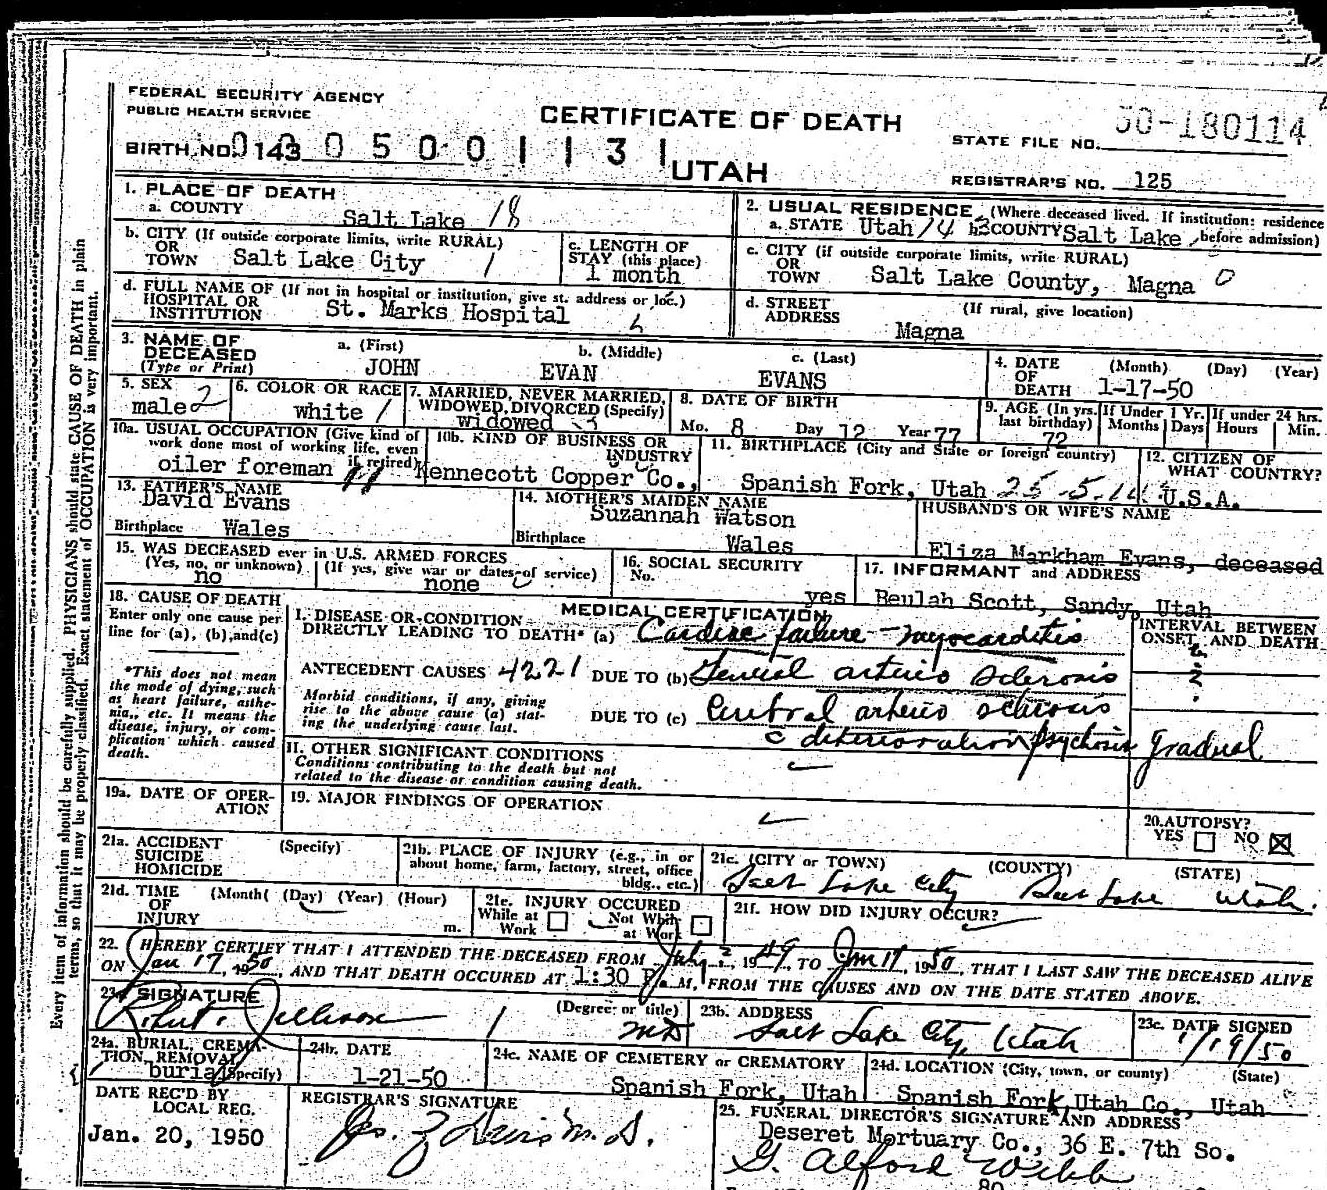 FEDERAL SECURITY AGENCY
PUBLIC HEALTH SERVICE
CERTIFICATE OF DEATH
STATE FILE NO. 50-180114
BIRTH NO. 143 0 0 5 0 0 1 1 3 1
UTAH
REGISTRAR'S NO. 125
1. PLACE OF DEATH
a. COUNTY
Salt Lake 18
2. USUAL RESIDENCE (Where deceased lived. If institution: residence
a. STATE Utah b. COUNTY Salt Lake before admission)
b. CITY (If outside corporate limits, write RURAL)
OR
TOWN Salt Lake City 1
c. LENGTH OF
STAY (this place)
1 month
c. CITY (if outside corporate limits, write RURAL)
OR
TOWN Salt Lake County, Magna 0
d. FULL NAME OF (If not in hospital or institution, give st. address or loc.)
HOSPITAL OR
INSTITUTION St. Marks Hospital
d. STREET (If rural, give location)
ADDRESS
Magna
3. NAME OF
DECEASED
(Type or Print)
a. (First) b. (Middle) c. (Last)
JOHN EVAN EVANS
4. DATE (Month) (Day) (Year)
OF
DEATH 1-17-50
5. SEX
male 2
6. COLOR OR RACE
white 1
7. MARRIED, NEVER MARRIED,
WIDOWED, DIVORCED (Specify)
widowed 3
8. DATE OF BIRTH
Mo. 8 Day 12 Year 77
9. AGE (In yrs.
last birthday)
72
If Under 1 Yr.
Months Days
If under 24 hrs.
Hours Min.
10a. USUAL OCCUPATION (Give kind of
work done most of working life, even
if retired)
oiler foreman
10b. KIND OF BUSINESS OR
INDUSTRY
Kennecott Copper Co.,
11. BIRTHPLACE (City and State or foreign country)
Spanish Fork, Utah
12. CITIZEN OF
WHAT COUNTRY?
U.S.A.
13. FATHER'S NAME
David Evans
Birthplace Wales
14. MOTHER'S MAIDEN NAME
Suzannah Watson
Birthplace Wales
HUSBAND'S OR WIFE'S NAME
Eliza Markham Evans, deceased
15. WAS DECEASED ever in U.S. ARMED FORCES
(Yes, no, or unknown) (If yes, give war or dates of service)
no none
16. SOCIAL SECURITY
No.
yes
17. INFORMANT and ADDRESS
Beulah Scott, Sandy, Utah
18. CAUSE OF DEATH
Enter only one cause per
line for (a), (b), and (c)
*This does not mean
the mode of dying, such
as heart failure, asthe-
nia, etc. It means the
disease, injury, or com-
plication which caused
death.
MEDICAL CERTIFICATION
I. DISEASE OR CONDITION
DIRECTLY LEADING TO DEATH* (a) Cardiac failure - myocarditis
INTERVAL BETWEEN
ONSET AND DEATH
ANTECEDENT CAUSES 4221 DUE TO (b) General arterio sclerosis
Morbid conditions, if any, giving
rise to the above cause (a) stat-
ing the underlying cause last.
DUE TO (c) Cerebral arterio sclerosis
c deterioration psychosis gradual
II. OTHER SIGNIFICANT CONDITIONS
Conditions contributing to the death but not
related to the disease or condition causing death.
19a. DATE OF OPER-
ATION
19. MAJOR FINDINGS OF OPERATION
20. AUTOPSY?
YES NO
21a. ACCIDENT (Specify)
SUICIDE
HOMICIDE
21b. PLACE OF INJURY (e.g., in or
about home, farm, factory, street, office
bldg., etc.)
21c. (CITY or TOWN) (COUNTY) (STATE)
Salt Lake City Salt Lake Utah.
21d. TIME (Month) (Day) (Year) (Hour)
OF
INJURY m.
21e. INJURY OCCURED
While at Work Not While at Work
21f. HOW DID INJURY OCCUR?
22. I HEREBY CERTIFY THAT I ATTENDED THE DECEASED FROM July, 1949, TO Jan 17, 1950, THAT I LAST SAW THE DECEASED ALIVE
ON Jan 17, 1950, AND THAT DEATH OCCURED AT 1:30 P.M., FROM THE CAUSES AND ON THE DATE STATED ABOVE.
23a SIGNATURE (Degree or title)
Robert MD
23b. ADDRESS
Salt Lake City, Utah
23c. DATE SIGNED
1/19/50
24a. BURIAL, CREMA-
TION, REMOVAL
(Specify)
burial
24b. DATE
1-21-50
24c. NAME OF CEMETERY or CREMATORY
Spanish Fork, Utah
24d. LOCATION (City, town, or county) (State)
Spanish Fork, Utah Co., Utah
DATE REC'D BY
LOCAL REG.
Jan. 20, 1950
REGISTRAR'S SIGNATURE
M.D.
25. FUNERAL DIRECTOR'S SIGNATURE AND ADDRESS
Deseret Mortuary Co., 36 E. 7th So.
G. Alford Webb
80
Every item of information should be carefully supplied. PHYSICIANS should state CAUSE OF DEATH in plain
terms, so that it may be properly classified. Exact statement of OCCUPATION is very important.